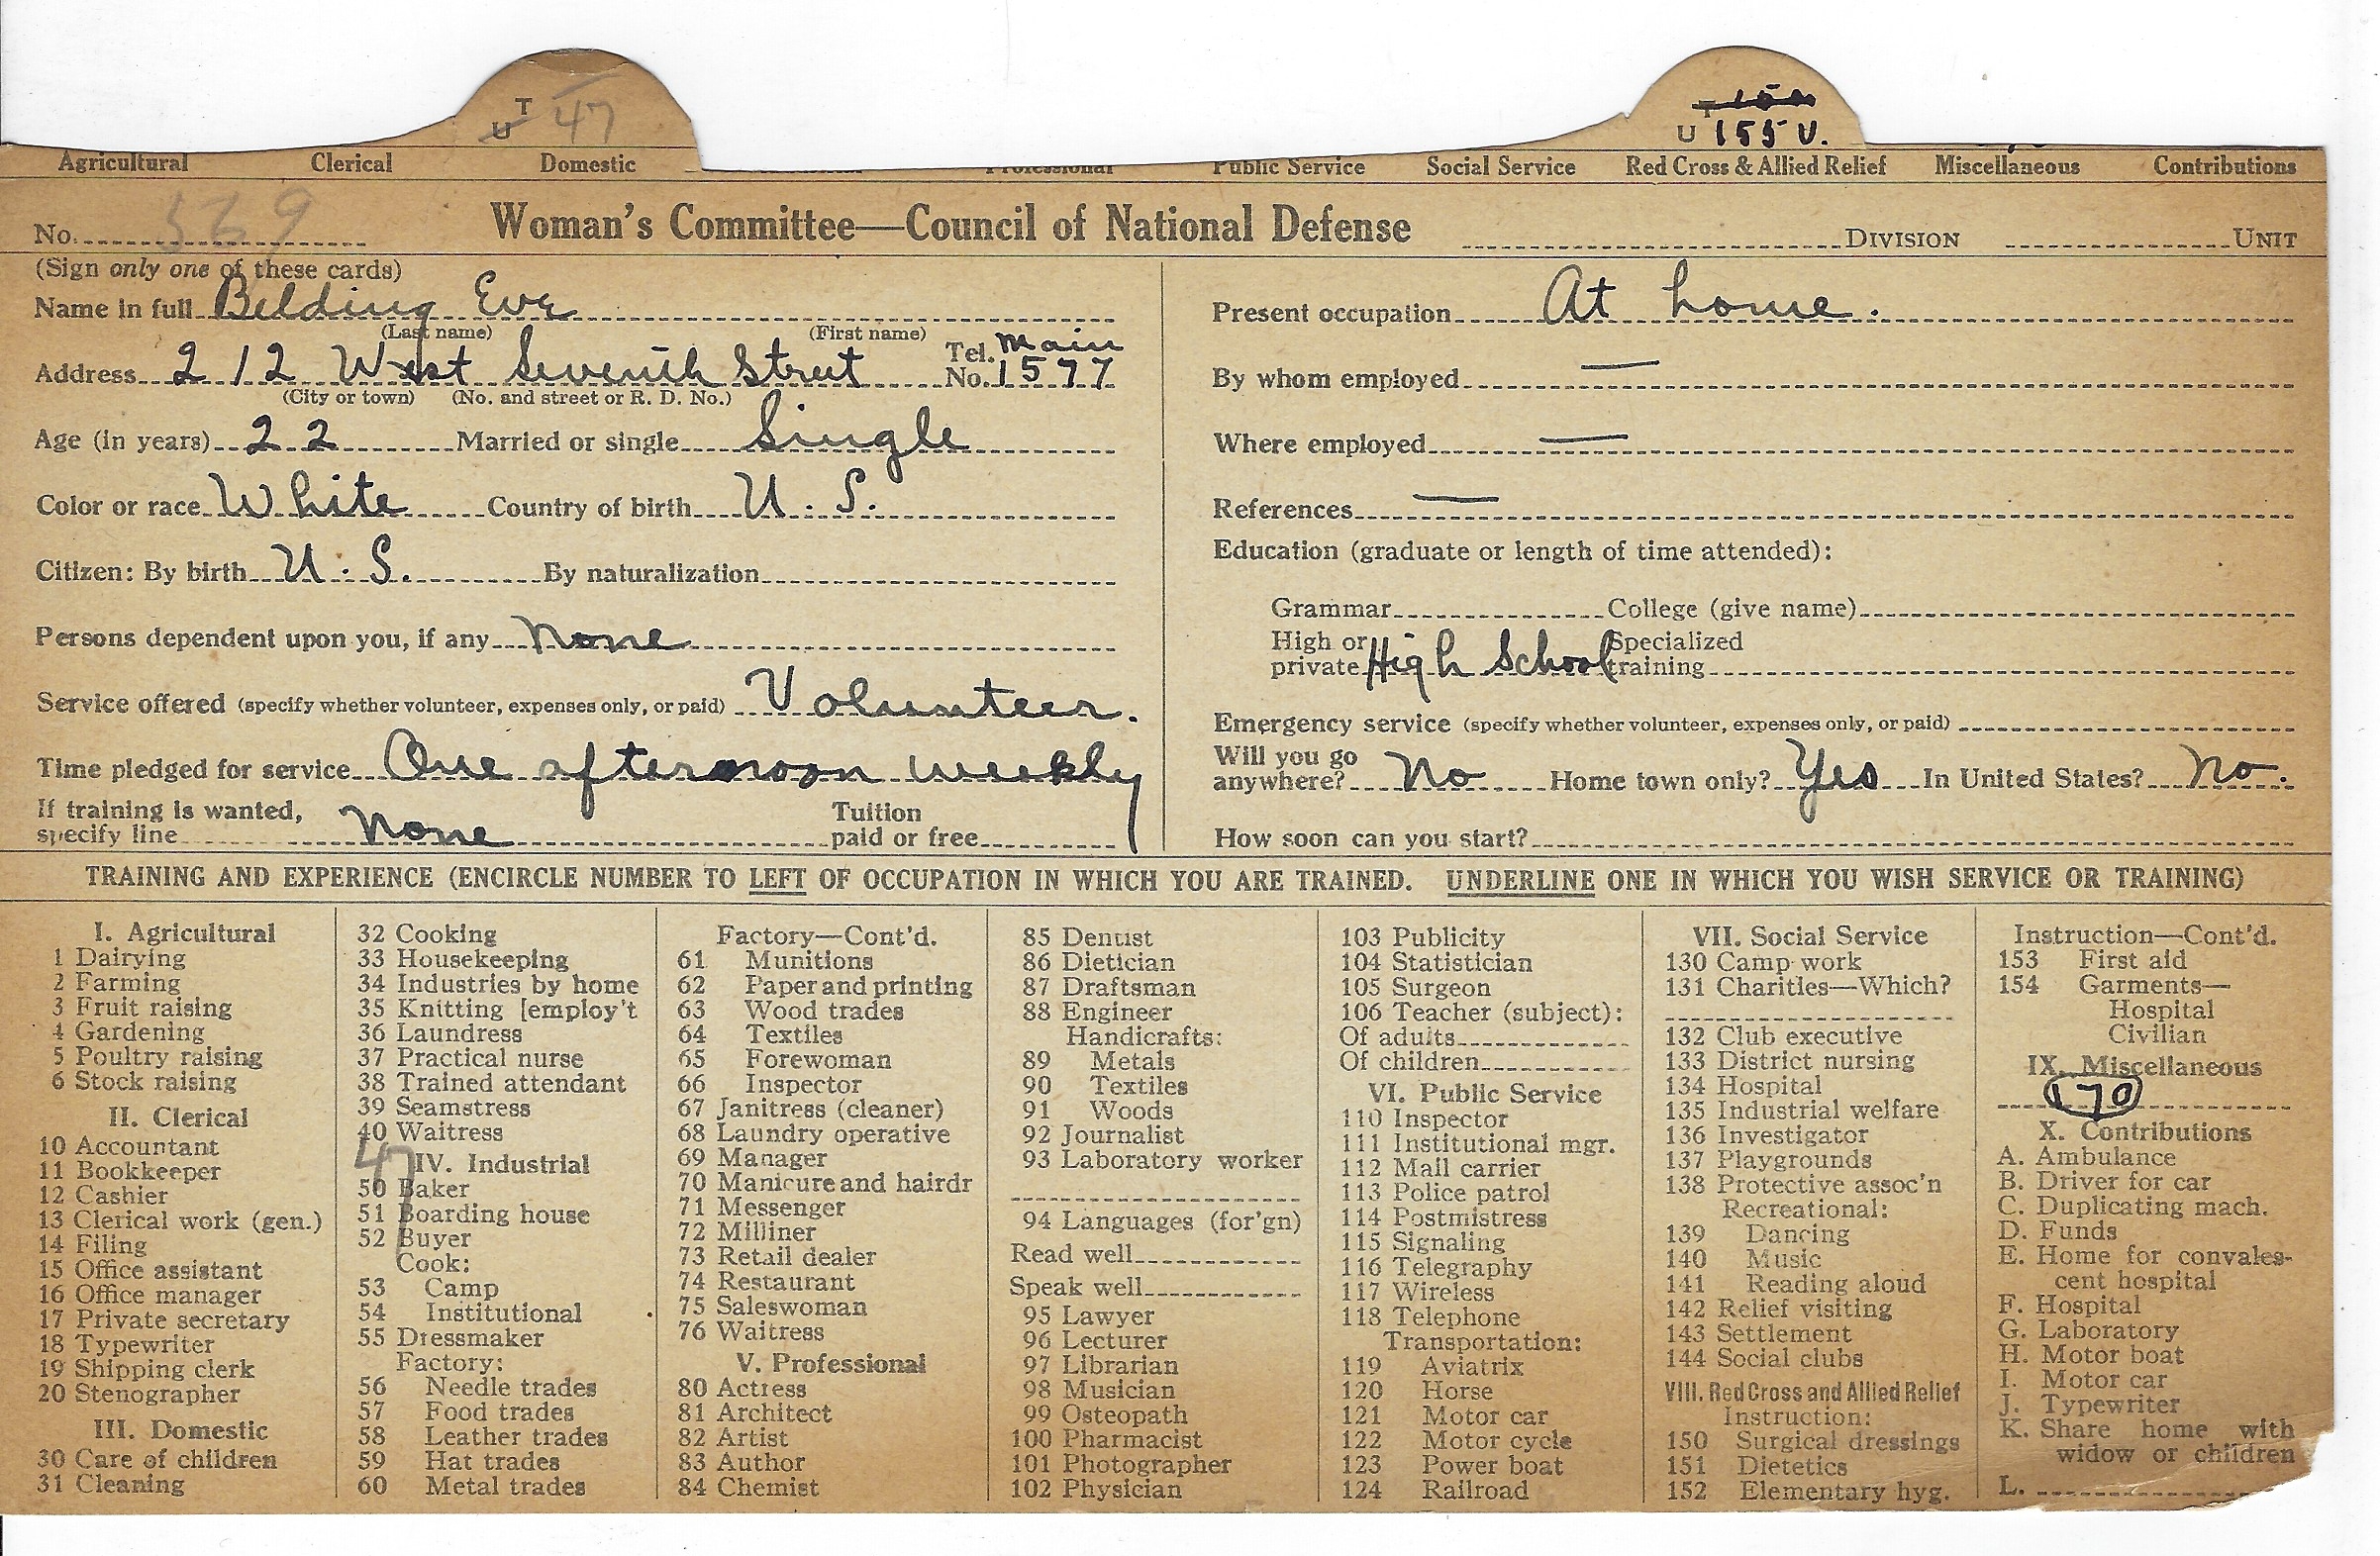 T
U 47
T 150
U 155 U.
Agricultural Clerical Domestic Professional Public Service Social Service Red Cross & Allied Relief Miscellaneous Contributions
No. 569 Woman's Committee—Council of National Defense DIVISION UNIT
(Sign only one of these cards)
Name in full Belding Eve
(Last name) (First name)
Address 212 West Seventh Street Tel. No. Main 1577
(City or town) (No. and street or R. D. No.)
Age (in years) 22 Married or single Single
Color or race White Country of birth U. S.
Citizen: By birth U. S. By naturalization
Persons dependent upon you, if any None
Service offered (specify whether volunteer, expenses only, or paid) Volunteer.
Time pledged for service One afternoon weekly
If training is wanted,
specify line None Tuition
paid or free
Present occupation At home.
By whom employed —
Where employed —
References —
Education (graduate or length of time attended):
Grammar College (give name)
High or
private High School Specialized
training
Emergency service (specify whether volunteer, expenses only, or paid)
Will you go
anywhere? No Home town only? Yes In United States? No.
How soon can you start?
TRAINING AND EXPERIENCE (ENCIRCLE NUMBER TO LEFT OF OCCUPATION IN WHICH YOU ARE TRAINED. UNDERLINE ONE IN WHICH YOU WISH SERVICE OR TRAINING)
I. Agricultural
1 Dairying
2 Farming
3 Fruit raising
4 Gardening
5 Poultry raising
6 Stock raising
II. Clerical
10 Accountant
11 Bookkeeper
12 Cashier
13 Clerical work (gen.)
14 Filing
15 Office assistant
16 Office manager
17 Private secretary
18 Typewriter
19 Shipping clerk
20 Stenographer
III. Domestic
30 Care of children
31 Cleaning
32 Cooking
33 Housekeeping
34 Industries by home
35 Knitting [employ't
36 Laundress
37 Practical nurse
38 Trained attendant
39 Seamstress
40 Waitress
47
IV. Industrial
50 Baker
51 Boarding house
52 Buyer
Cook:
53 Camp
54 Institutional
55 Dressmaker
Factory:
56 Needle trades
57 Food trades
58 Leather trades
59 Hat trades
60 Metal trades
Factory—Cont'd.
61 Munitions
62 Paper and printing
63 Wood trades
64 Textiles
65 Forewoman
66 Inspector
67 Janitress (cleaner)
68 Laundry operative
69 Manager
70 Manicure and hairdr
71 Messenger
72 Milliner
73 Retail dealer
74 Restaurant
75 Saleswoman
76 Waitress
V. Professional
80 Actress
81 Architect
82 Artist
83 Author
84 Chemist
85 Dentist
86 Dietician
87 Draftsman
88 Engineer
Handicrafts:
89 Metals
90 Textiles
91 Woods
92 Journalist
93 Laboratory worker
94 Languages (for'gn)
Read well
Speak well
95 Lawyer
96 Lecturer
97 Librarian
98 Musician
99 Osteopath
100 Pharmacist
101 Photographer
102 Physician
103 Publicity
104 Statistician
105 Surgeon
106 Teacher (subject):
Of adults
Of children
VI. Public Service
110 Inspector
111 Institutional mgr.
112 Mail carrier
113 Police patrol
114 Postmistress
115 Signaling
116 Telegraphy
117 Wireless
118 Telephone
Transportation:
119 Aviatrix
120 Horse
121 Motor car
122 Motor cycle
123 Power boat
124 Railroad
VII. Social Service
130 Camp work
131 Charities—Which?
132 Club executive
133 District nursing
134 Hospital
135 Industrial welfare
136 Investigator
137 Playgrounds
138 Protective assoc'n
Recreational:
139 Dancing
140 Music
141 Reading aloud
142 Relief visiting
143 Settlement
144 Social clubs
VIII. Red Cross and Allied Relief
Instruction:
150 Surgical dressings
151 Dietetics
152 Elementary hyg.
Instruction—Cont'd.
153 First aid
154 Garments—
Hospital
Civilian
IX. Miscellaneous
170
X. Contributions
A. Ambulance
B. Driver for car
C. Duplicating mach.
D. Funds
E. Home for convales-
cent hospital
F. Hospital
G. Laboratory
H. Motor boat
I. Motor car
J. Typewriter
K. Share home with
widow or children
L.